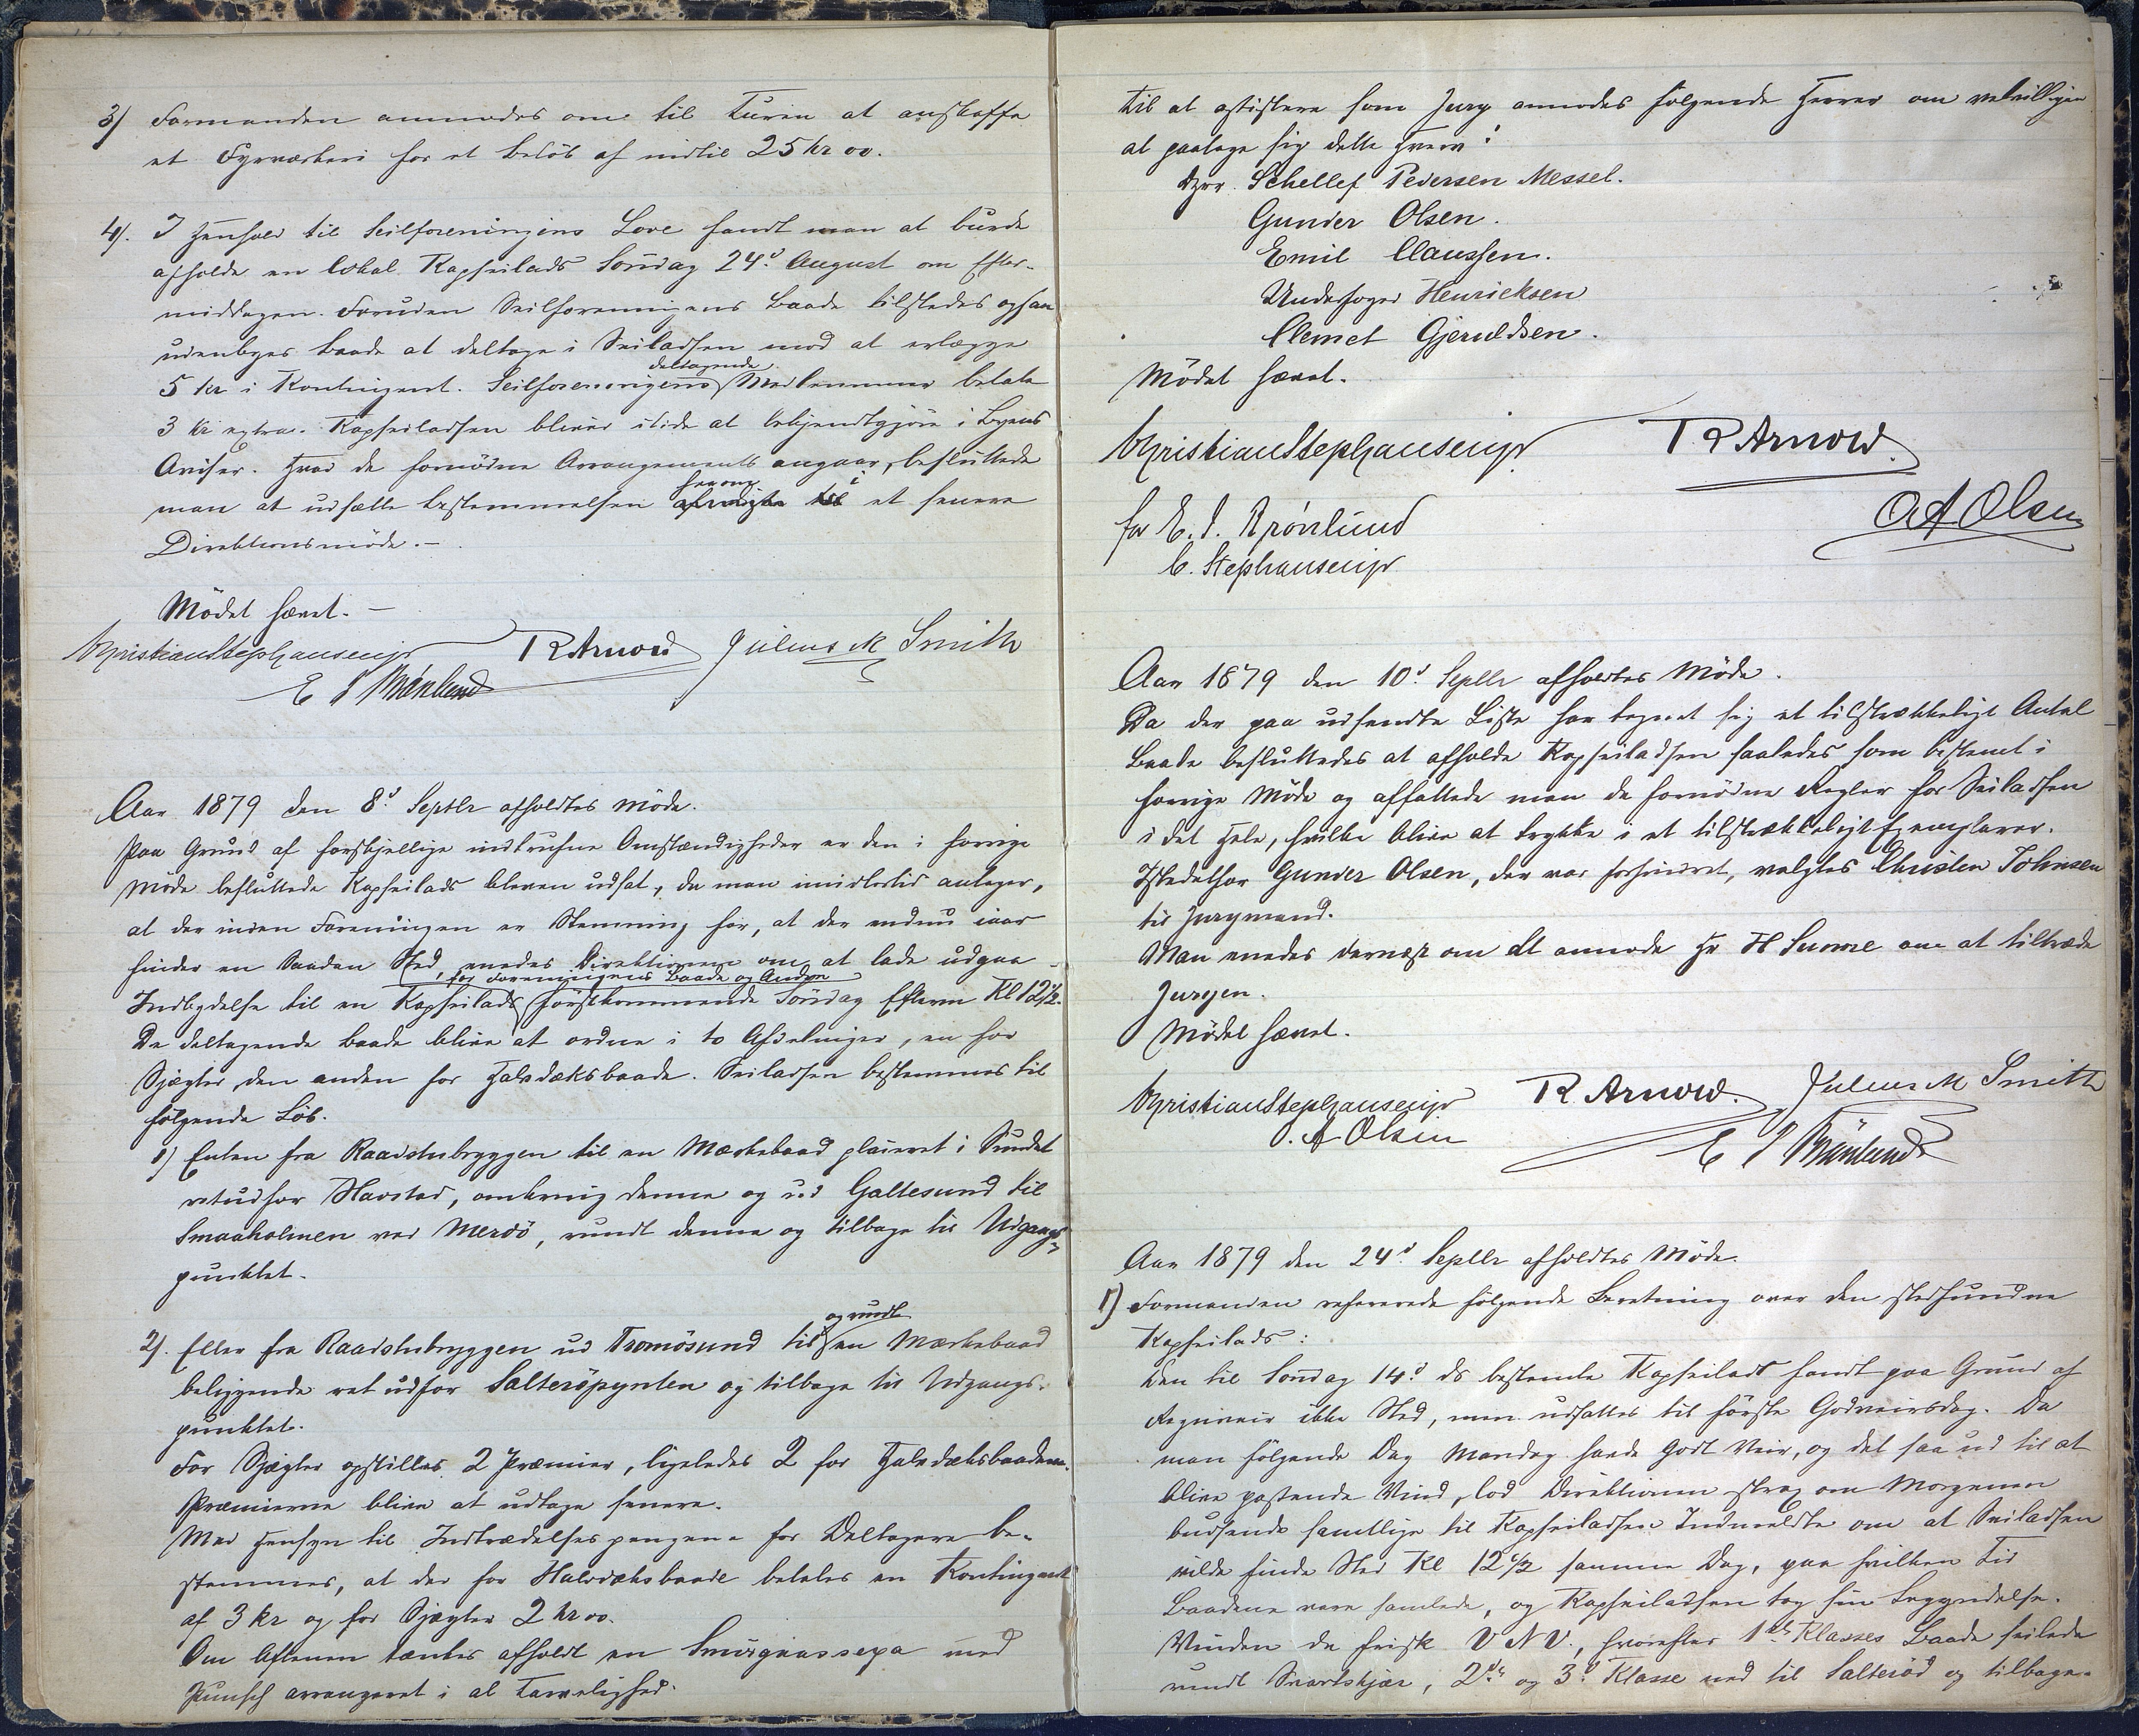 3) Formanden anmodes om til Turen at anskaffe
et Fyrværkeri for et Beløb af indtil 25 kr oo.
4). I Henhold til Seilforeningens Love fandt man at burde
afholde en lokal Kapseilads Søndag 24d August om Efter-
middagen. Foruden Seilforeningens Baade tilstedes ogsaa
udenbyes Baade at deltage i Seiladsen mod at erlægge
deltagende
5 kr i Kontingent. Seilforeningens Medlemmer betale
3 kr extra. Kapseiladsen bliver itide at bekjendtgjøre i Byens
Aviser. Hvad de fornødne Arrangements angaar, besluttede
herom i
man at udsætte Bestemmelsen til et senere
Direktionsmøde.-
Mødet hævet. -
ChristianStephansenjr R Arnold Julius M Smith
E I Brönlund
Aar 1879 den 8d Septbr afholdtes Møde.
Paa Grund af forskjellige indtrufne Omstændigheder er den i forrige
Møde besluttede Kapseilads bleven udsat, da man imidlertid antager,
at der inden Foreningen er Stemning for, at der endnu iaar
finder en saadan Sted, enedes Direktionen om at lade udgaa
for Foreningens Baade og Andre
Indbydelse til en Kapseilads førstkommende Söndag Efterm Kl 12½.
De deltagende Baade blive at ordne i to Afdelinger, en for
Sjægter, den anden for Halvdæksbaade. Seiladsen bestemmes til
følgende Løb.
1) Enten fra Raadstubryggen til en Mærkebaad placeret i Sundet
retudfor Havstad, omkring denne og ud Galtesund til
Smaaholmen ved Merdö, rundt denne og tilbage til Udgangs-
punktet.
og rundt
2). Eller fra Raadstubryggen ud Tromösund til en Mærkebaad
beliggende ret udfor Salteröpynten og tilbage til Udgangs-
punktet.
For Sjægter opstilles 2 Præmier, ligeledes 2 for Halvdæksbaadene.
Præmierne blive at udtage senere.
Med Hensyn til Indtrædelsespengene for Deltagere be-
stemmes, at der for Halvdæksbaade betales en Kontingent
af 3 kr og for Sjægter 2 kr oo.
Om Aftenen tænkes afholdt en Smörgaassexa med
Punsch arrangeret i al Tarvelighed.
Til at assistere som Jury anmodes følgende Herrer om velvilligen
at paatage sig dette Hverv:
Hrr. Schellef Pedersen Messel.
Gunder Olsen.
Emil Claussen.
Underfoged Henricksen
Clemet Gjeruldsen.
Mødet hævet.
ChristianStephansenjr R Arnold
O A Olsen
for E. I. Brönlund
C. Stephansenjr
Aar 1879 den 10d Septbr afholdtes Møde.
Da der paa udsendte Liste har tegnet sig et tilstrækkeligt Antal
Baade besluttedes at afholde Kapseiladsen saaledes som bestemt i
forrige Møde og affattede man de fornødne Regler for Seiladsen
i det Hele, hvilke blive at trykke i et tilstrækkeligt Exemplarer.
Istedetfor Gunder Olsen, der var forhindret, valgtes Christen Johnsen
til Jurymand.
Man enedes dernæst om at anmode Hr H Sunne om at tiltræde
Juryen.
Mødet hævet.
ChristianStephansenjr R. Arnold. Julius M Smith
O. A Olsen E I Brönlund
Aar 1879 den 24d Septbr afholdtes Møde.
1) Formanden refererede følgende Beretning over den stedfundne
Kapseilads:
Den til Söndag 14d ds bestemte Kapseilads fandt paa Grund af
Regnveir ikke Sted, men udsattes til første Godveirsdag. Da
man følgende Dag Mandag havde godt Veir, og det saa ud til at
blive passende Vind, lod Direktionen strax om Morgenen
budsende samtlige til Kapseiladsen Indmeldte om at Seiladsen
vilde finde Sted Kl 12½ samme Dag, paa hvilken Tid
Baadene vare samlede, og Kapseiladsen tog sin Begyndelse.
Vinden da frisk V N V., hvorefter 1ste Klasses Baade seilede
rundt Svartskjær, 2den og 3d Klasse ned til Salteröd og tilbage.